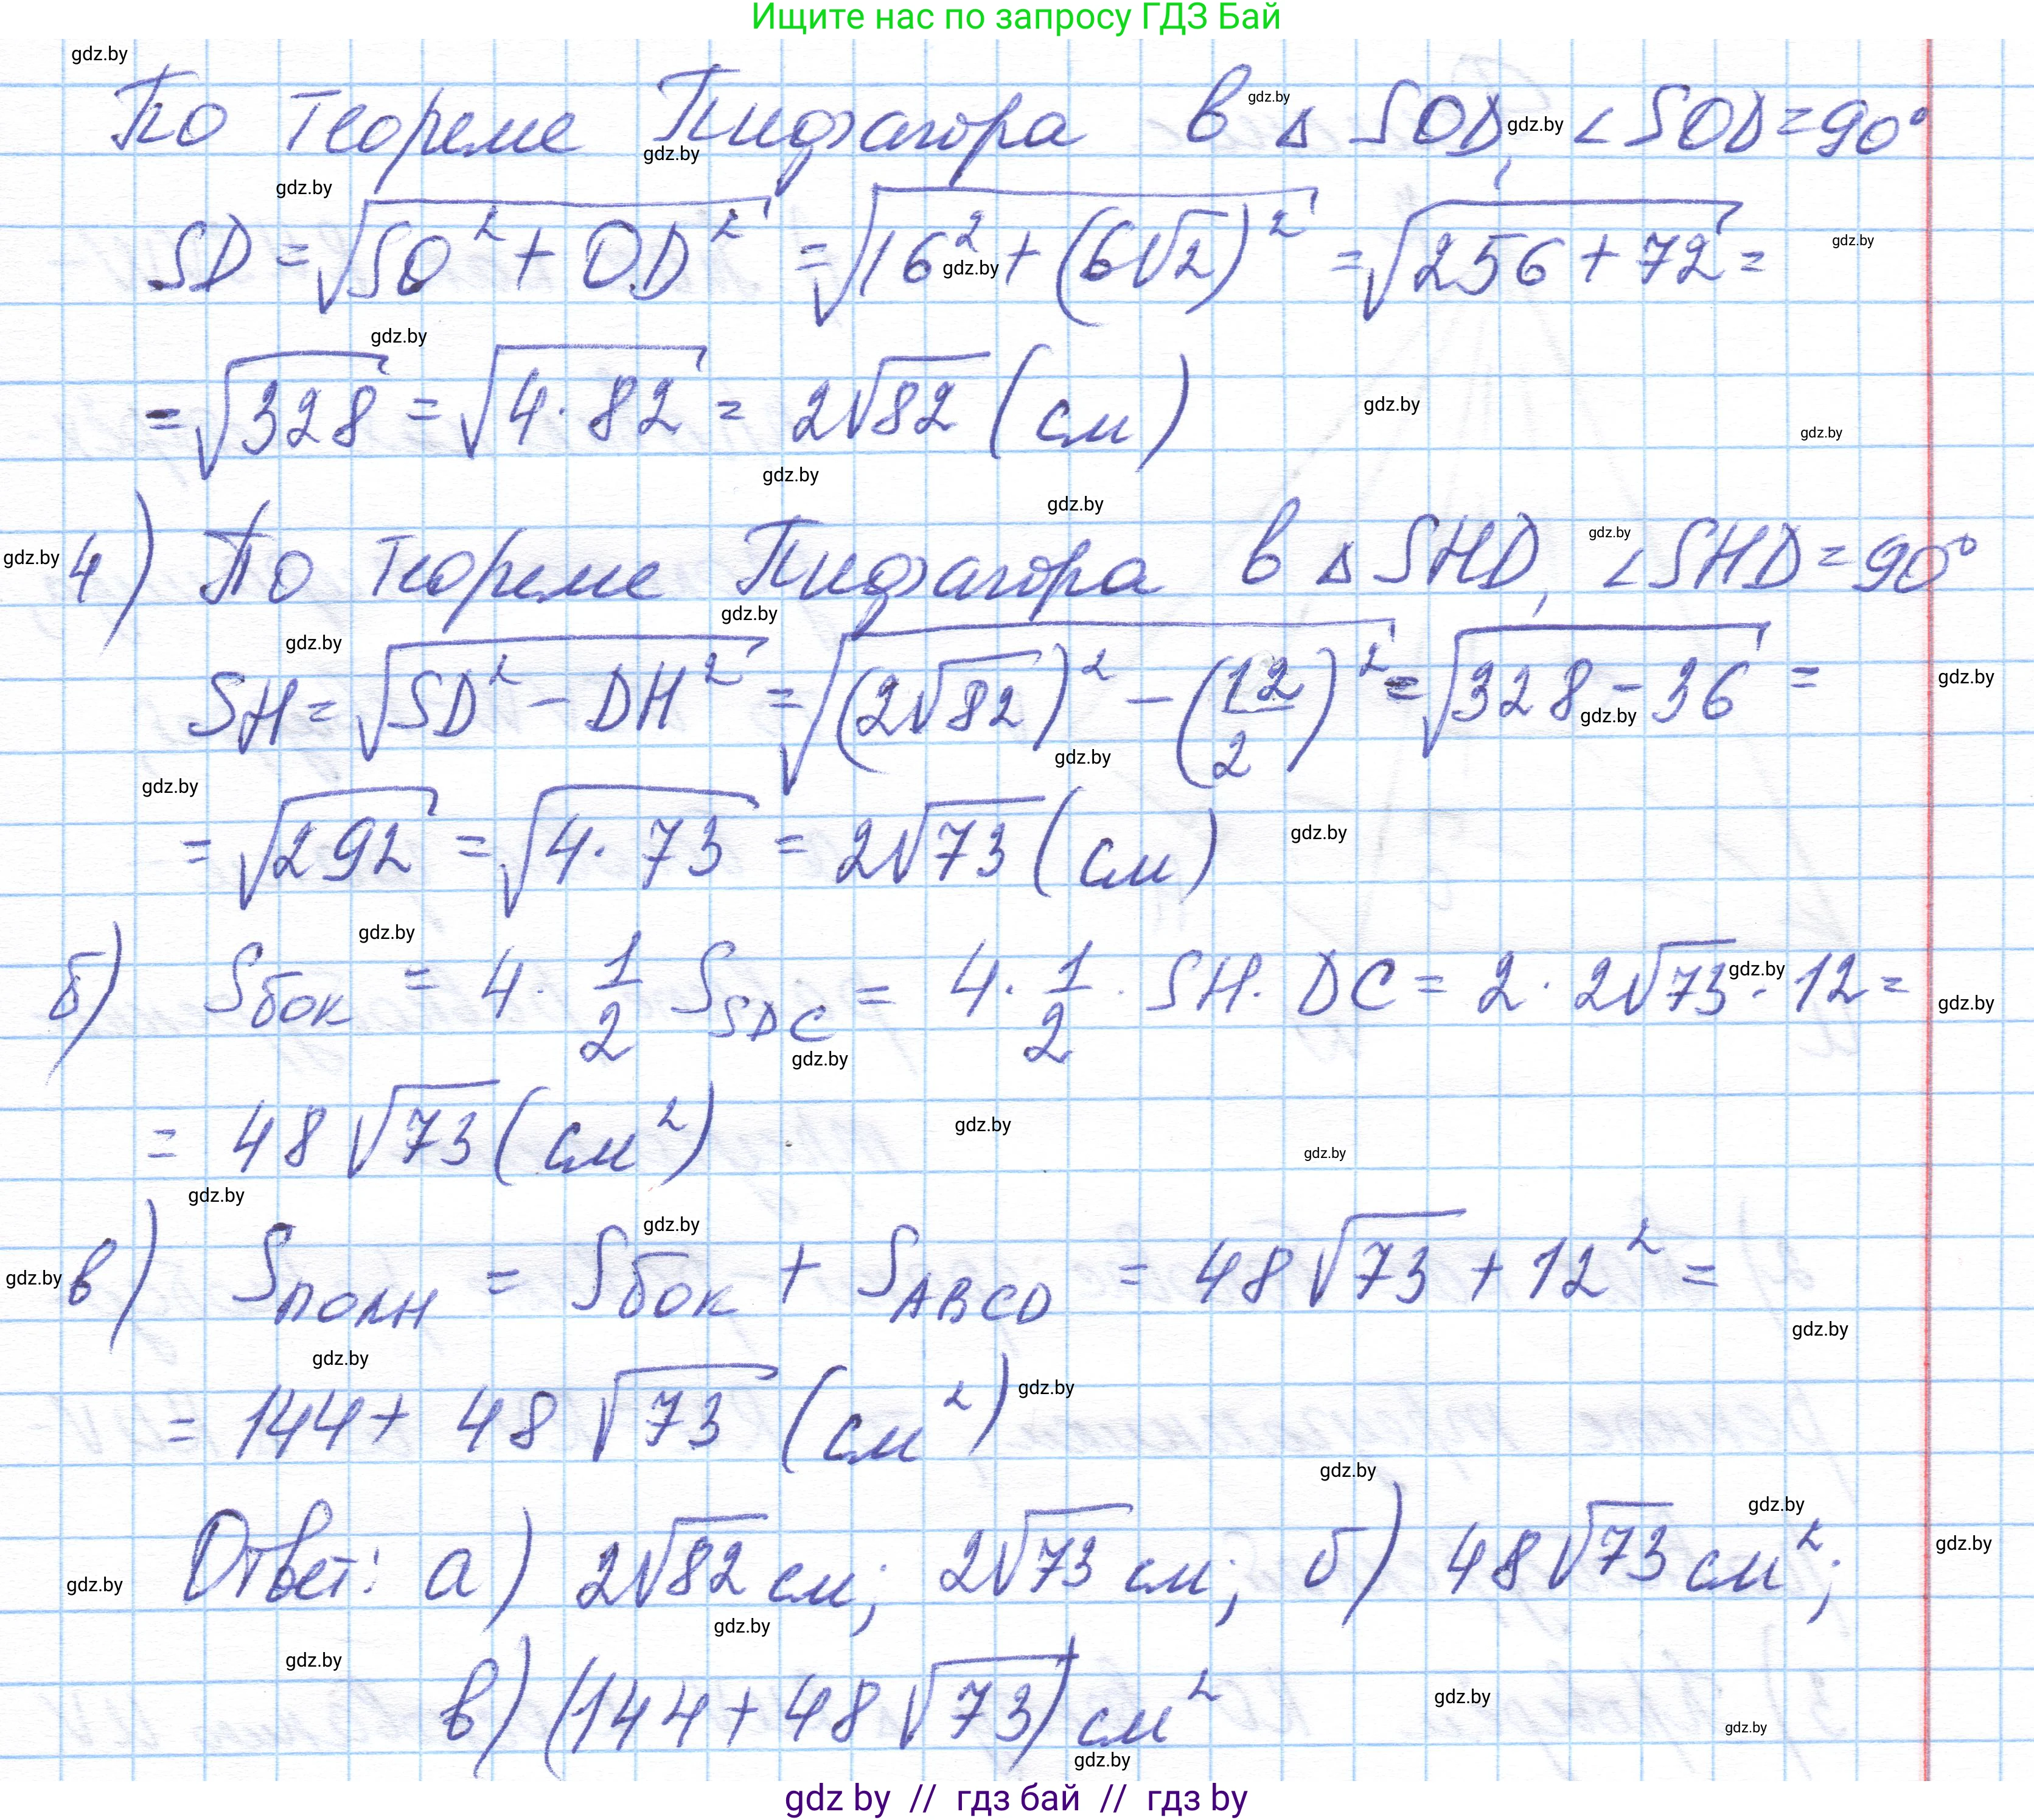 Ищите нас по запросу ГДЗ Бай
По теореме Пифагора в △ SOD, ∠SOD = 90°
SD = √(SO² + OD²) = √(16² + (6√2)²) = √(256 + 72) =
= √328 = √(4·82) = 2√82 (см)
4) По теореме Пифагора в △ SHD, ∠SHD = 90°
SH = √(SD² − DH²) = √((2√82)² − (12/2)²) = √(328 − 36) =
= √292 = √(4·73) = 2√73 (см)
б) Sбок = 4 · 1/2 S_SDC = 4 · 1/2 · SH · DC = 2 · 2√73 · 12 =
= 48√73 (см²)
в) Sполн = Sбок + S_ABCD = 48√73 + 12² =
= 144 + 48√73 (см²)
Ответ: а) 2√82 см; 2√73 см; б) 48√73 см²;
в) (144 + 48√73) см²
gdz by // гдз бай // гдз by